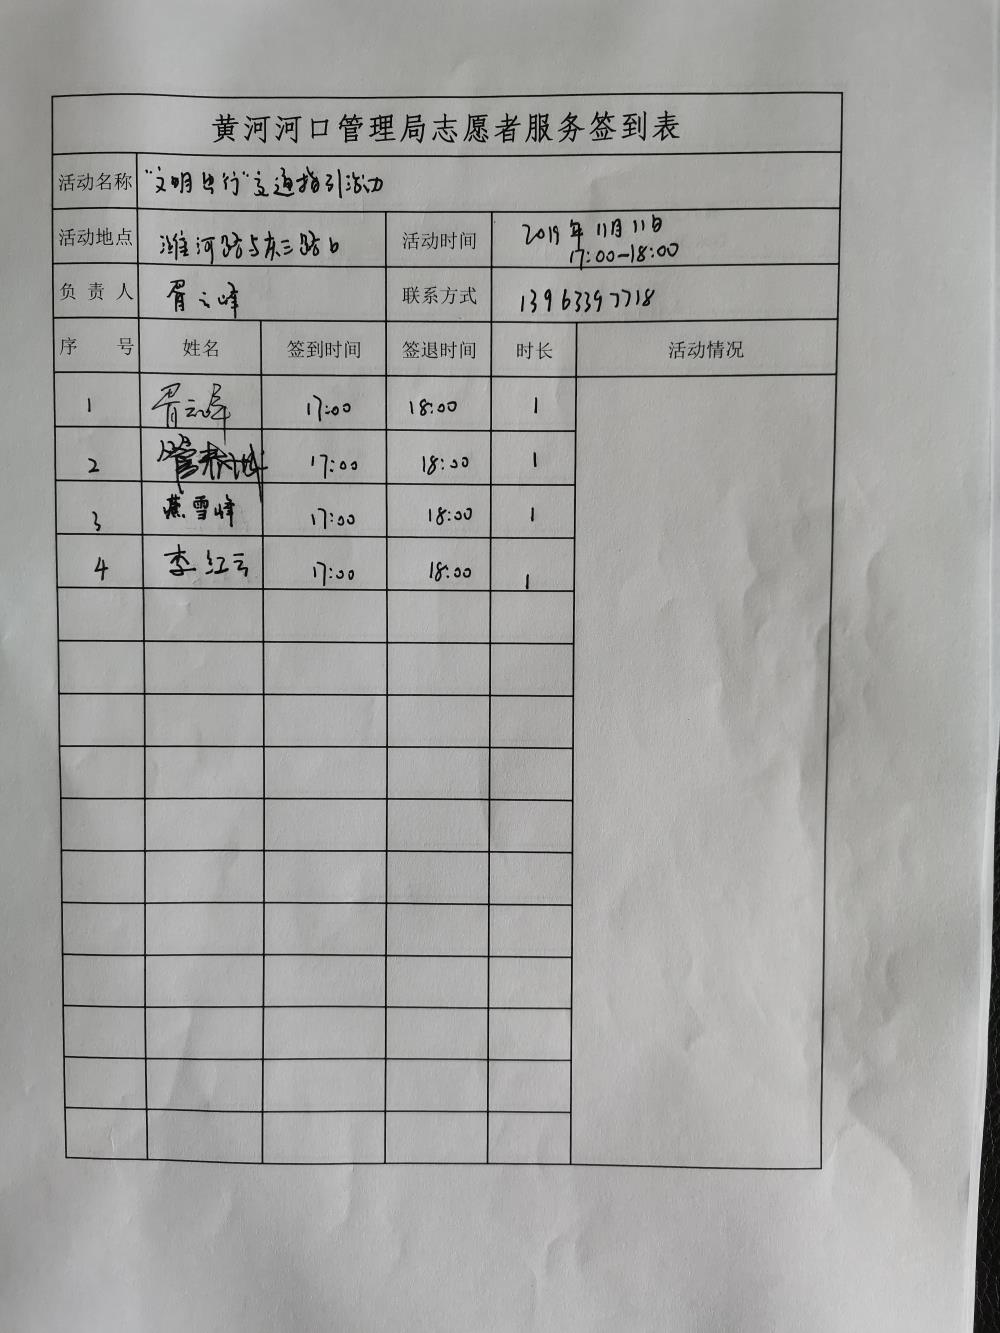 黄河河口管理局志愿者服务签到表
活动名称 "文明出行"交通指引活动
活动地点 潍河路与东三路口 活动时间 2019年11月11日
17:00-18:00
负责人 胥云峰 联系方式 13963397718
序号 姓名 签到时间 签退时间 时长 活动情况
1 胥云峰 17:00 18:00 1
2 17:00 18:00 1
3 燕雪峰 17:00 18:00 1
4 李红云 17:00 18:00 1